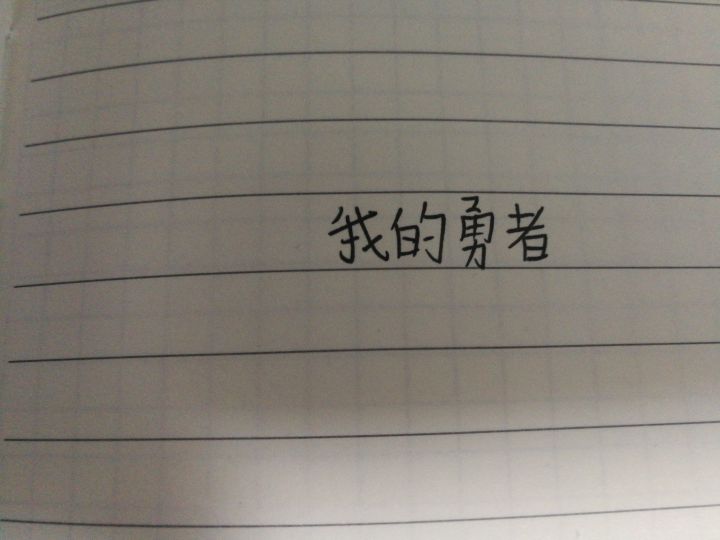 我的勇者